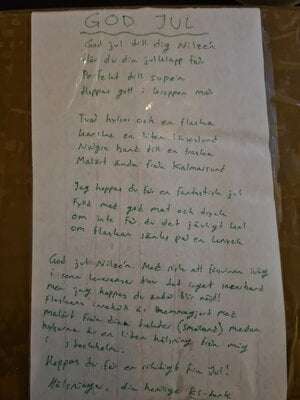 GOD JUL
God jul till dig Nilzén
Här du din julklapp får
Perfekt till supen
Hoppas gott i kroppen mår
Två hylsor och en flaska
kanske en liten läsestund
Några band till en traska
Malört ända från Kalmarsund
Jag hoppas du får en fantastisk jul
Fylld med god mat och dryck
om inte får du det jävligt kul
om flaskan sänks på en
God jul Nilzén. Med risk att försvinna iväg
i som levereras blev det inget
men jag hoppas du ändå blir nöjd!
Flaskans innehåll är hemmagjord med
malört från dina trakter (Småland) medan
hylsorna är en liten hälsning från mig
i Stockholm.
Hoppas du får en riktigt fin Jul!
Hälsningar, din hemlige